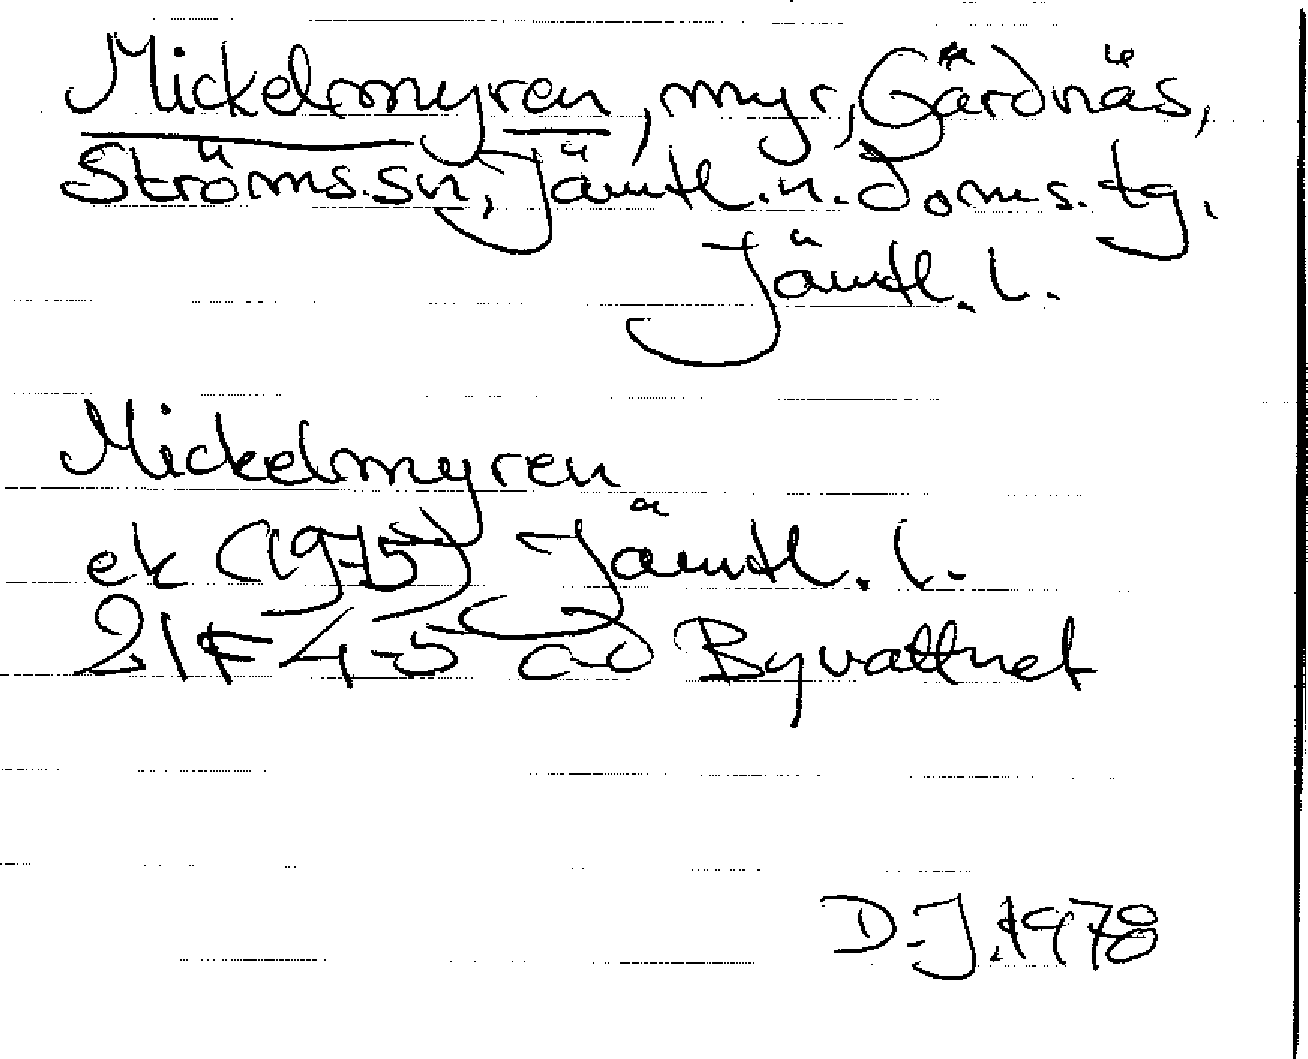 Mickelmyren, myr, Gärdnäs,
Ströms sn, Jämtl. n. doms. tg.
Jämtl. l.
Mickelmyren
ek (1975) Jämtl. l.
21F 4-5 c-d Byvattnet
D-J. 1978